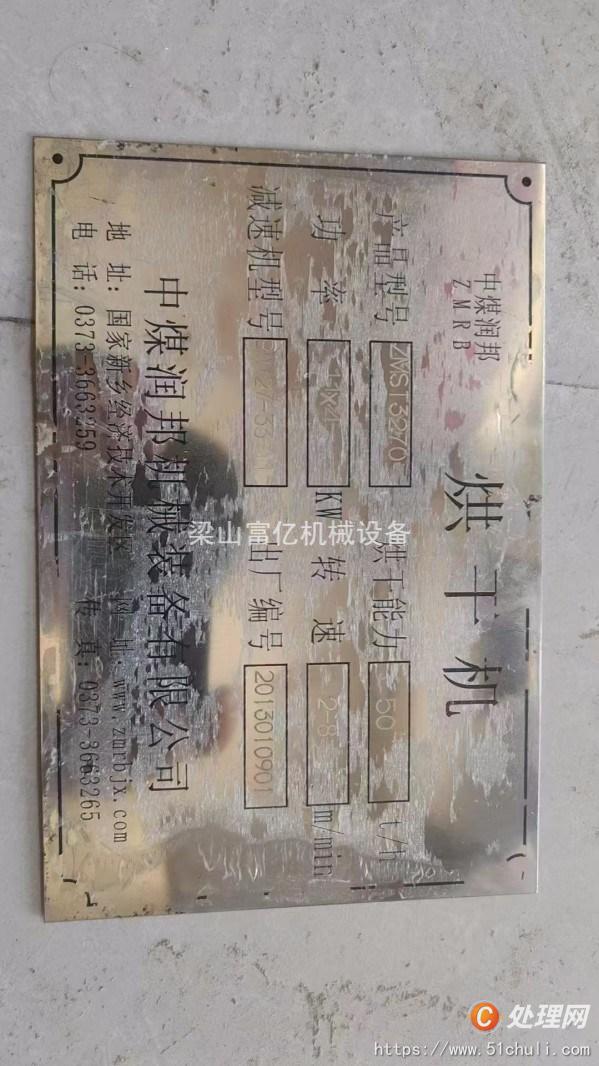 中煤润邦
ZMRB
烘干机
产品型号 ZMST3270 烘干能力 50 t/h
功率 KW 转速 2-8 m/min
减速机型号 出厂编号 2013010901
中煤润邦机械装备有限公司
地址：国家新乡经济技术开发区 网址：www.zmrbjx.com
电话：0373-3663259 传真：0373-3663265
梁山富亿机械设备
C处理网
https://www.51chuli.com